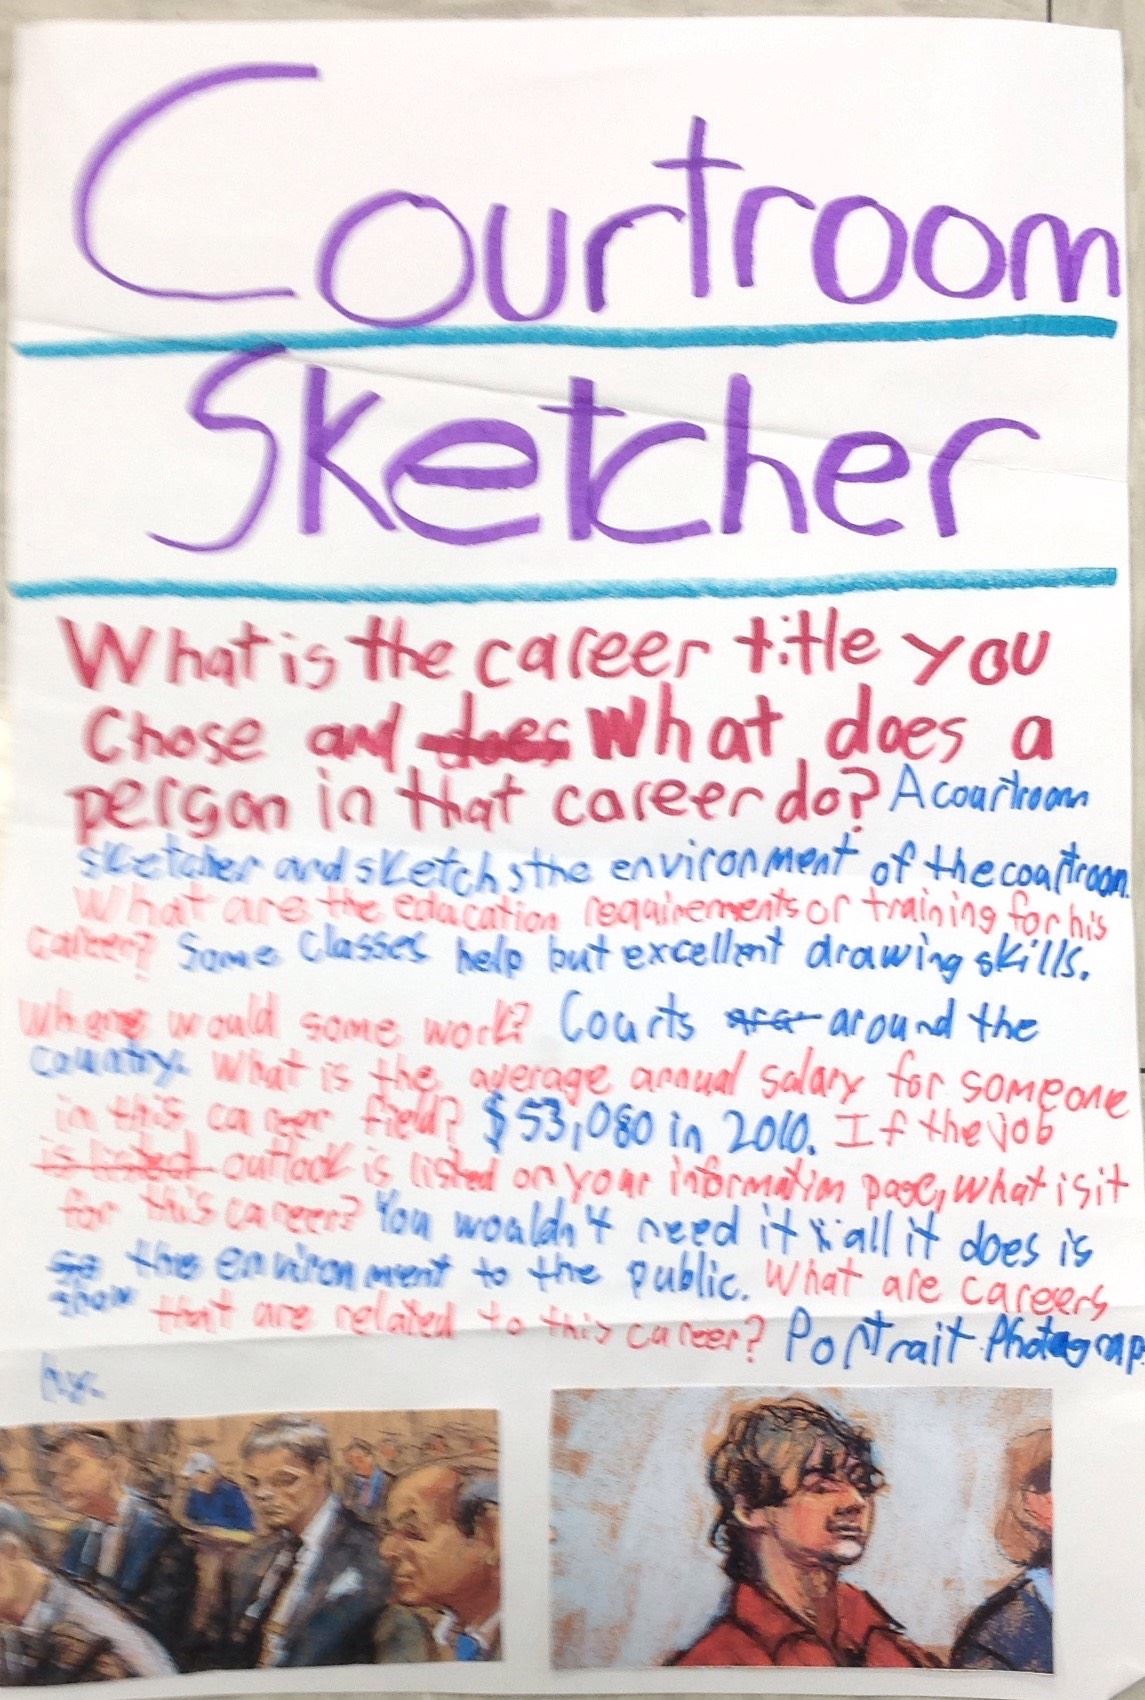 Courtroom
Sketcher
What is the career title you
chose and does What does a
person in that career do? A courtroom
sketcher and sketch sthe environment of the courtroom.
What are the education requirements or training for his
career? Some Classes help but excellent drawing skills.
Where would some work? Courts around the
country. What is the average annual salary for someone
in this career field? $53,080 in 2010. If the job
is listed outlook is listed on your information page, what is it
for this career? You wouldn't need it all it does is
the environment to the public. What are careers
show that are related to this career? Portrait Photograp